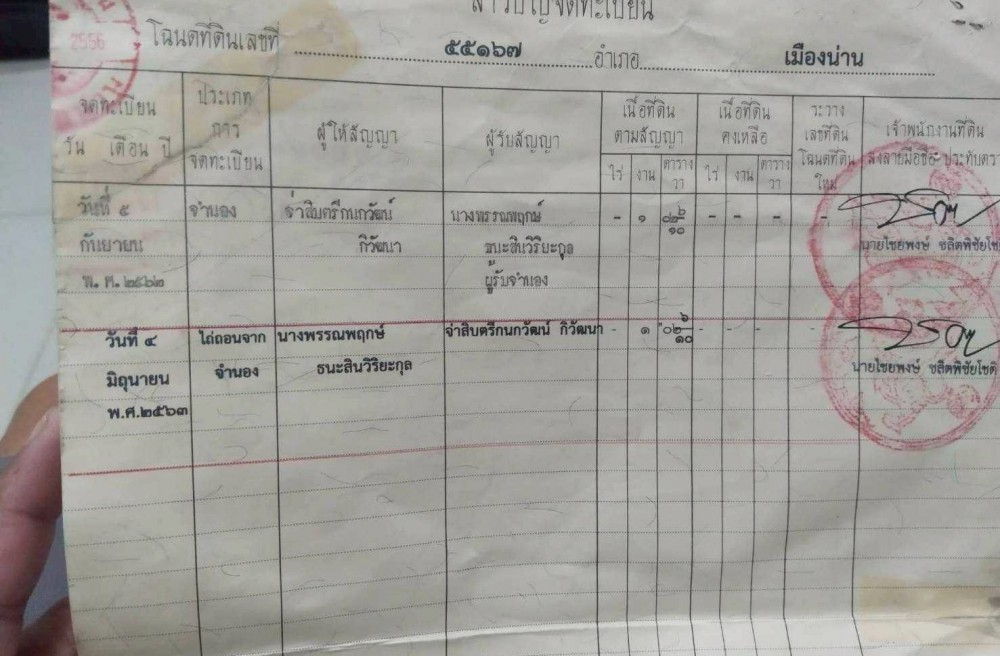 สารบัญจดทะเบียน
2556
โฉนดที่ดินเลขที่ ๕๕๑๖๗ อำเภอ เมืองน่าน
จดทะเบียน
วัน เดือน ปี
ประเภท
การ
จดทะเบียน
ผู้ให้สัญญา
ผู้รับสัญญา
เนื้อที่ดิน
ตามสัญญา
ไร่ งาน ตาราง
วา
เนื้อที่ดิน
คงเหลือ
ไร่ งาน ตาราง
วา
ระวาง
เลขที่ดิน
โฉนดที่ดิน
ใหม่
เจ้าพนักงานที่ดิน
ลงลายมือชื่อ ประทับตรา
วันที่ ๕
กันยายน
พ.ศ. ๒๕๖๒
จำนอง
จ่าสิบตรีกนกวัฒน์
กิวัฒนา
นางพรรณพฤกษ์
ธนะสินวิริยะกุล
ผู้รับจำนอง
- ๑ - - - -
นายไชยพงษ์ ชลิตพิชัยโชติ
วันที่ ๔
มิถุนายน
พ.ศ.๒๕๖๓
ไถ่ถอนจาก
จำนอง
นางพรรณพฤกษ์
ธนะสินวิริยะกุล
จ่าสิบตรีกนกวัฒน์ กิวัฒนา
- ๑ - - - -
นายไชยพงษ์ ชลิตพิชัยโชติ